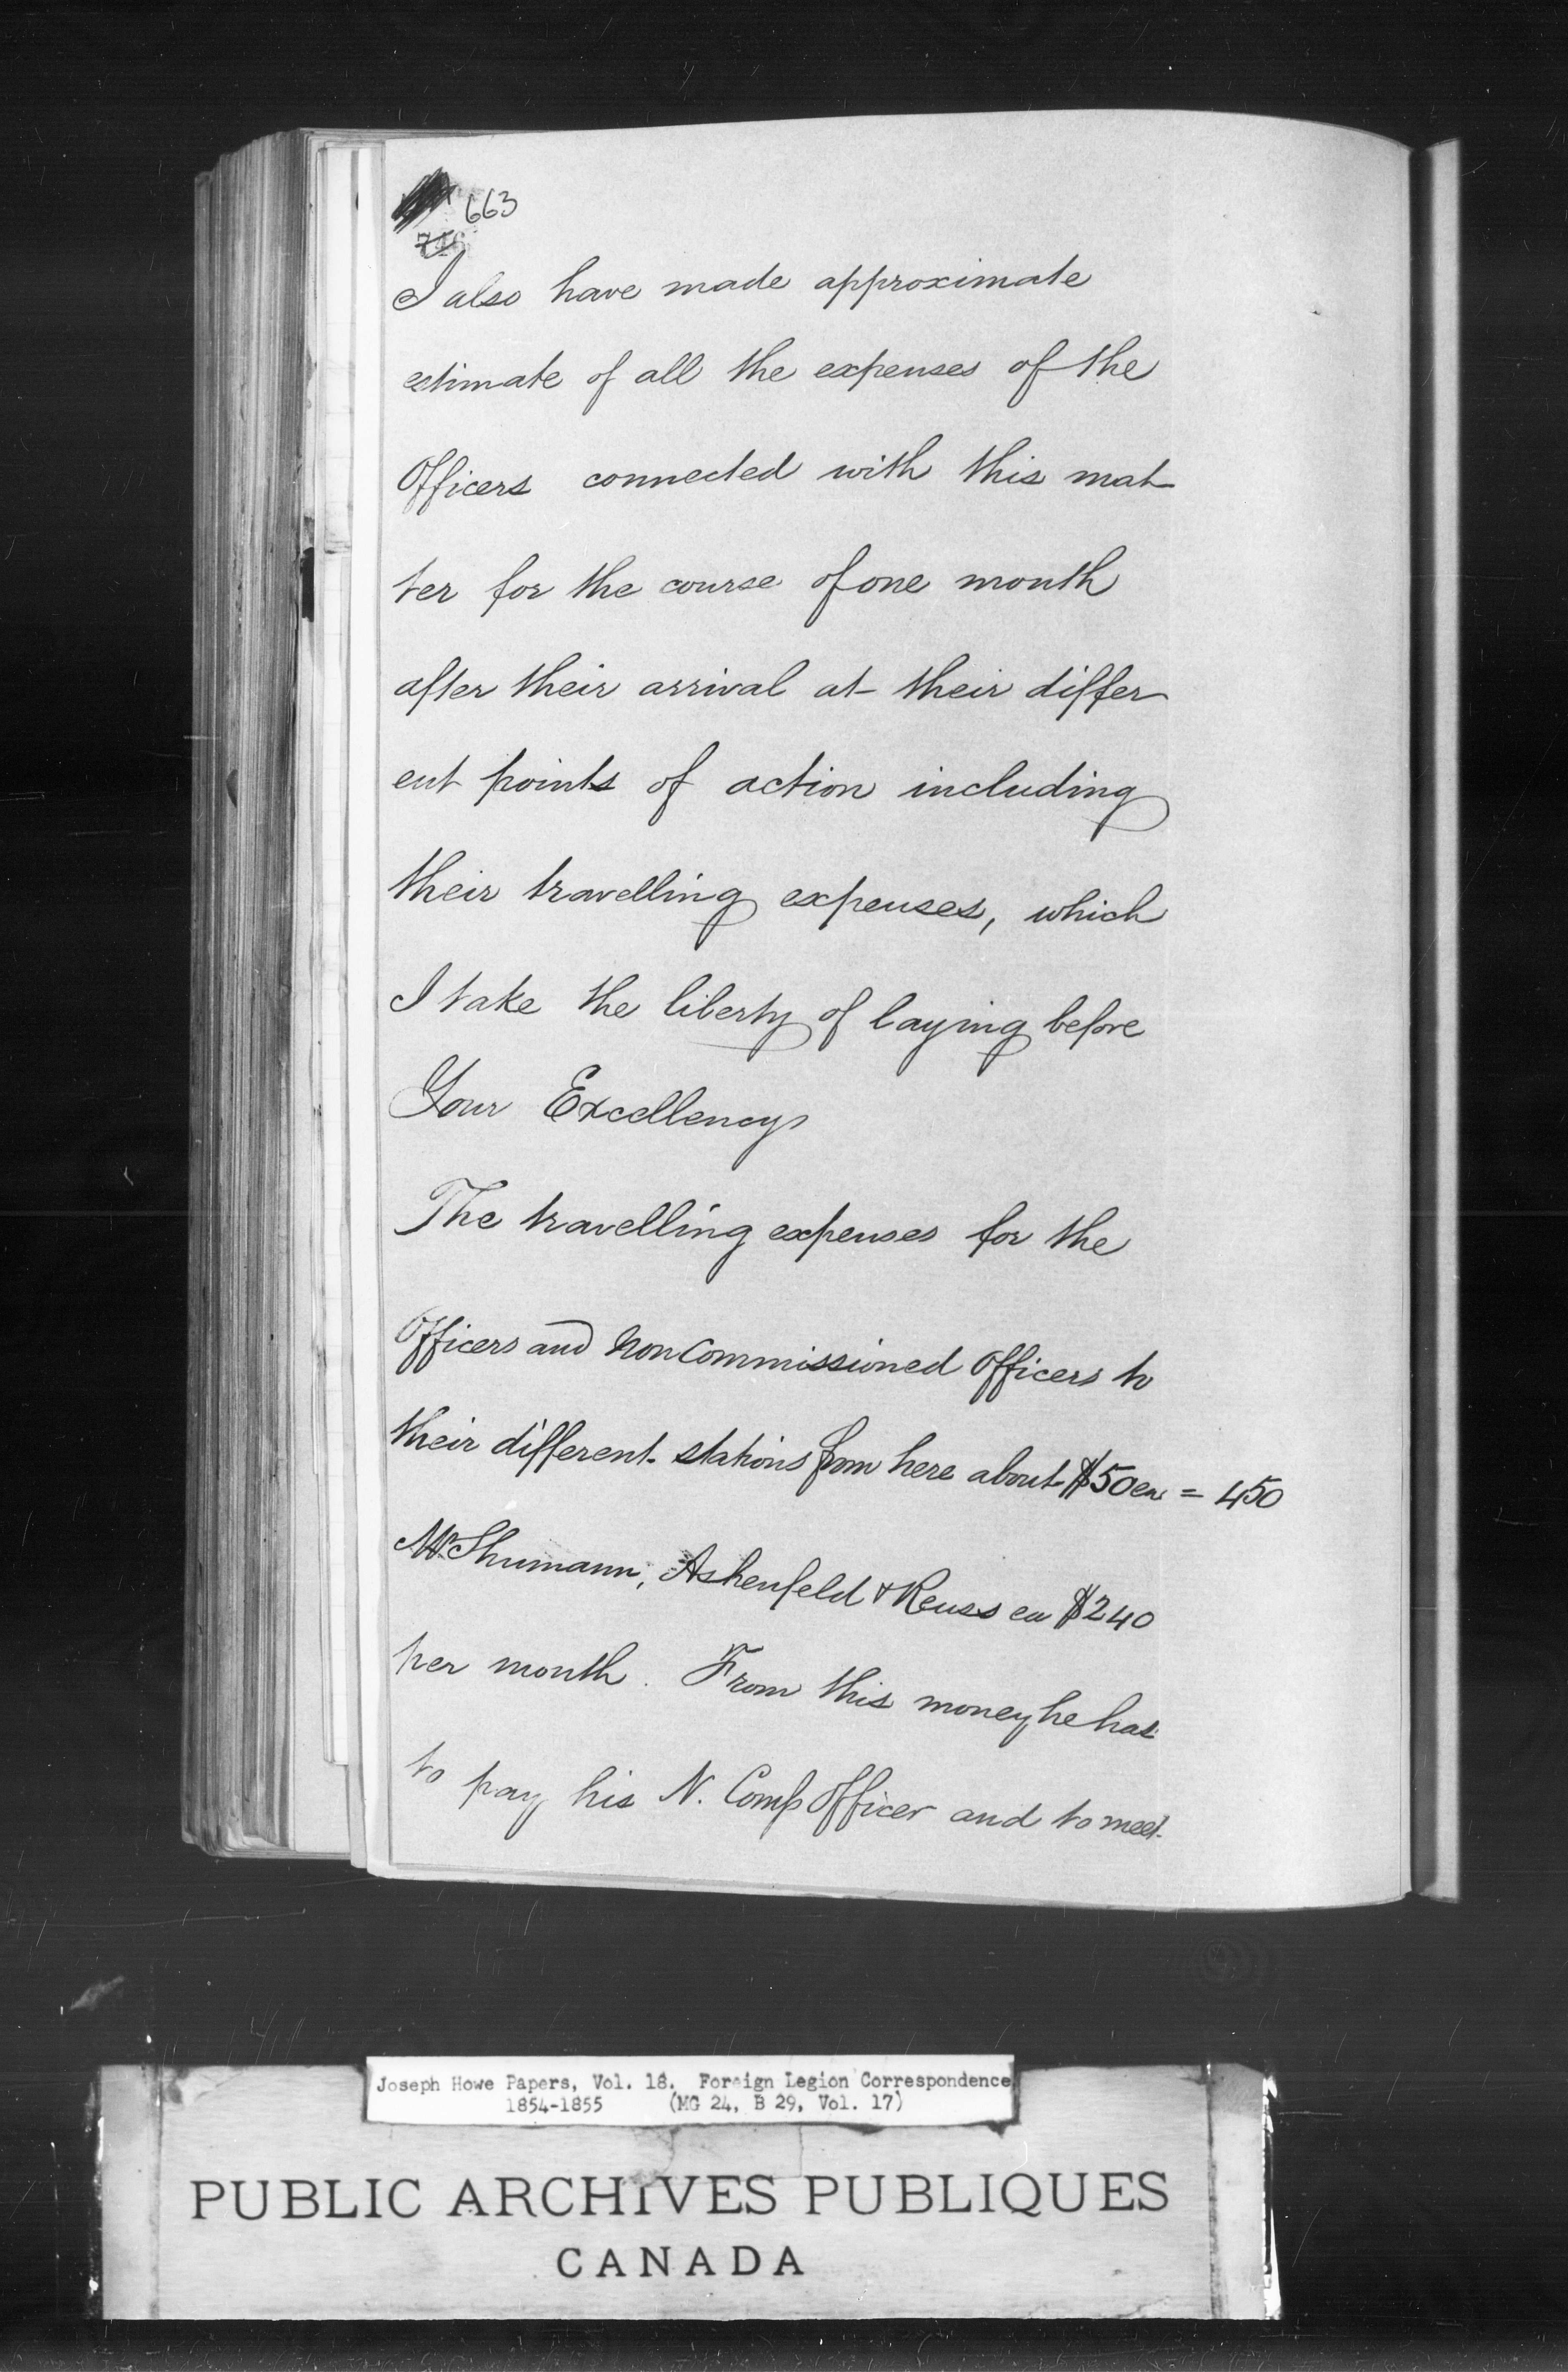 663
I also have made approximate
estimate of all the expenses of the
Officers connected with this mat
ter for the course of one month
after their arrival at their differ
ent points of action including
their travelling expenses, which
I take the liberty of laying before
Your Excellency
The travelling expenses for the
Officers and Non Commissioned Officers to
their different stations from here about $50 ea = 450
Mr. Shumann, Ashenfeld & Reuss ea $240
per month. From this money he has
to pay his N. Comp Officer and to meet
Joseph Howe Papers, Vol. 18. Foreign Legion Correspondence
1854-1855 (MG 24, B 29, Vol. 17)
PUBLIC ARCHIVES PUBLIQUES
CANADA